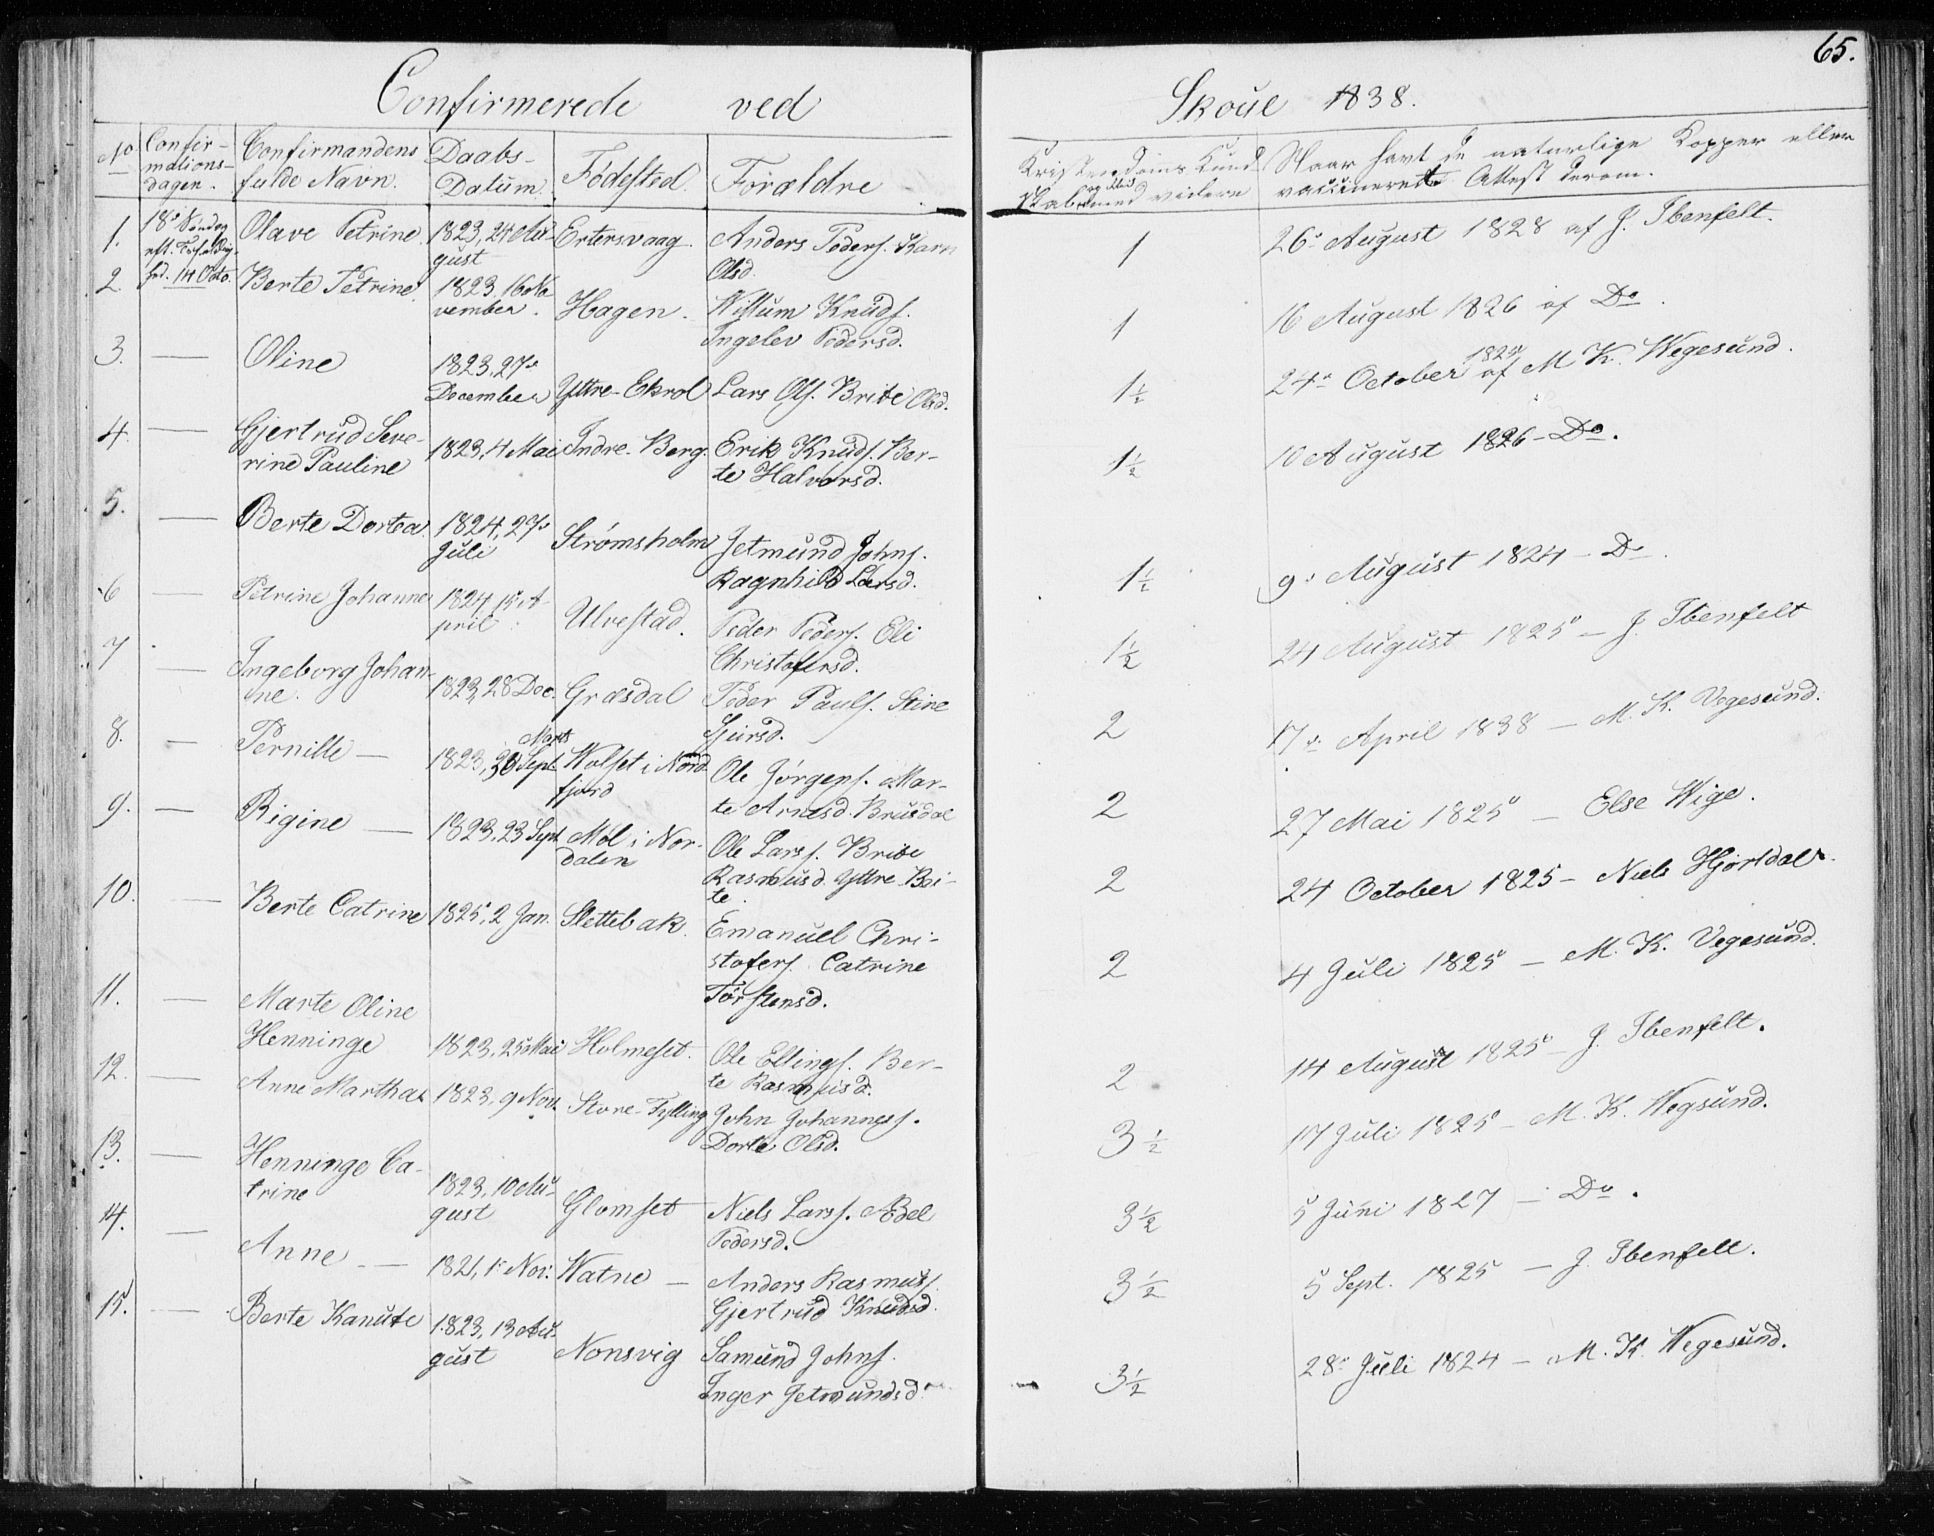 65.
Confirmerede ved Skoue 1838.
No
Confir-
mations-
dagen.
Confirmandens
fulde Navn.
Daabs-
Datum.
Fødested.
Forældre
Kristendoms Kund-
skab og Flid med videre
Naar havt de naturlige Kopper eller
vaccineret Attest derom.
1. 18de Søndag
eft. Trefoldig-
hed. 14 Octo.
Olave Petrine
1823, 24 Au-
gust
Ertersvaag.
Anders Peders. Karn
Olsd.
1
26de August 1828 af J. Ibenfelt.
2. Berte Petrine.
1823, 16 No
vember.
Hagen.
Willum Knuds.
Ingelev Pedersd.
1
16 August 1826 af Do.
3. — Oline
1823, 27de
December
Yttre-Ekrol
Lars Ols. Brite Olsd.
1½
24de October af M. K. Wegesund.
4. — Gjertrud Seve-
rine Pauline
1823, 4 Mai
Indre-Berg.
Erik Knuds. Ber-
te Halvorsd.
1½
10 August 1826 - Do.
5. — Berte Dortea
1824, 27de
Juli
Strømsholm
Jetmund Johns.
Ragnhild Larsd.
1½
9de August 1824 - Do.
6 — Petrine Johanne
1824, 15 A-
pril
Ulvestad.
Peder Peders. Eli
Christofersd.
1½
24 August 1825 - J. Ibenfelt
7 — Ingeborg Johan-
ne.
1823, 28 Dec.
Græsdal
Peder Pauls. Stine
Sjursd.
2
17de April 1838 - M. K. Vegesund.
8. — Pernille —
Marts
1823, 30 Sept.
Wolset i Nord
fjord
Ole Jørgens. Mar-
te Arnesd. Brusdal
2
27 Mai 1825 - Else Wige.
9. — Rigine —
1823, 23 Sept
Møl i Nor-
dalen
Ole Larss. Brite
Rasmusd. Yttre-Bri-
te.
2
24 October 1825 - Niels Hjortdal.
10. — Berte Catrine
1825, 2 Jan.
Slettebak.
Emanuel Chri-
stofers. Catrine
Torstensd.
2
4 Juli 1825 - M. K. Vegesund.
11. — Marte Oline
Henninge
1823, 25 Mai
Holmeset.
Ole Ellings. Ber-
te Rasmusd.
2
14 August 1825 - J. Ibenfelt.
12. — Anne Martha
1823, 9 Nov.
Store-Fylling
John Johanness.
Dorte Olsd.
3½
17 Juli 1825 - M. K. Wegsund.
13. — Henninge Ca-
trine
1823, 10 Au-
gust
Glomset
Niels Larss. Abel
Pedersd.
3½
5 Juni 1827 - Do.
14. — Anne —
1821, 1de Nov.
Watne —
Anders Rasmuss.
Gjertrud Knudsd.
3½
5 Sept. 1825 - J. Ibenfelt.
15. — Berte Kanute
1823, 13 Au-
gust
Nonsvig
Samund Johns.
Inger Jetmundsd.
3½
28de Juli 1824 - M. K. Wegesund.